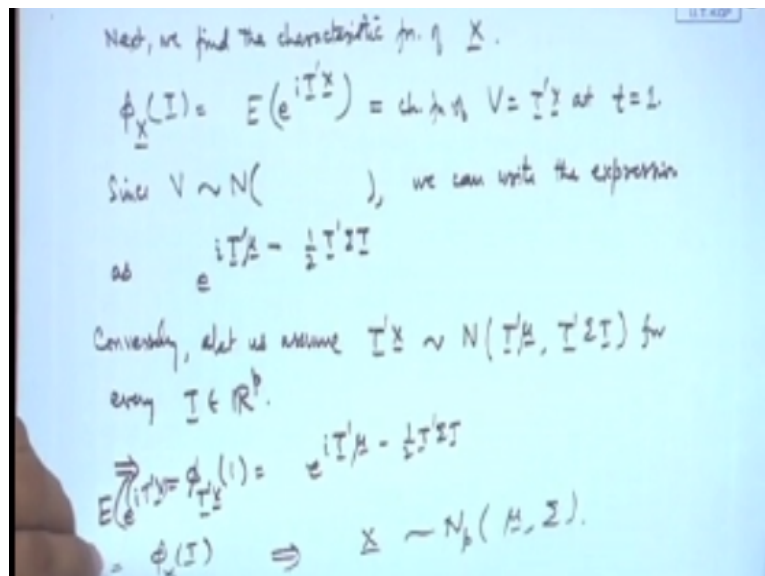 Next, we find the characteristic fn. of X.
φ_X(T) = E(e^{iT'X}) = ch. fn. of V = T'X at t=1
Since V ~ N( ), we can write the expression
as e^{iT'μ - ½T'ΣT}
Conversely, let us assume T'X ~ N(T'μ, T'ΣT) for
every T ∈ ℝ^p.
⇒ E(e^{iT'X}) = φ_{T'X}(1) = e^{iT'μ - ½T'ΣT}
= φ_X(T) ⇒ X ~ N_p(μ, Σ).